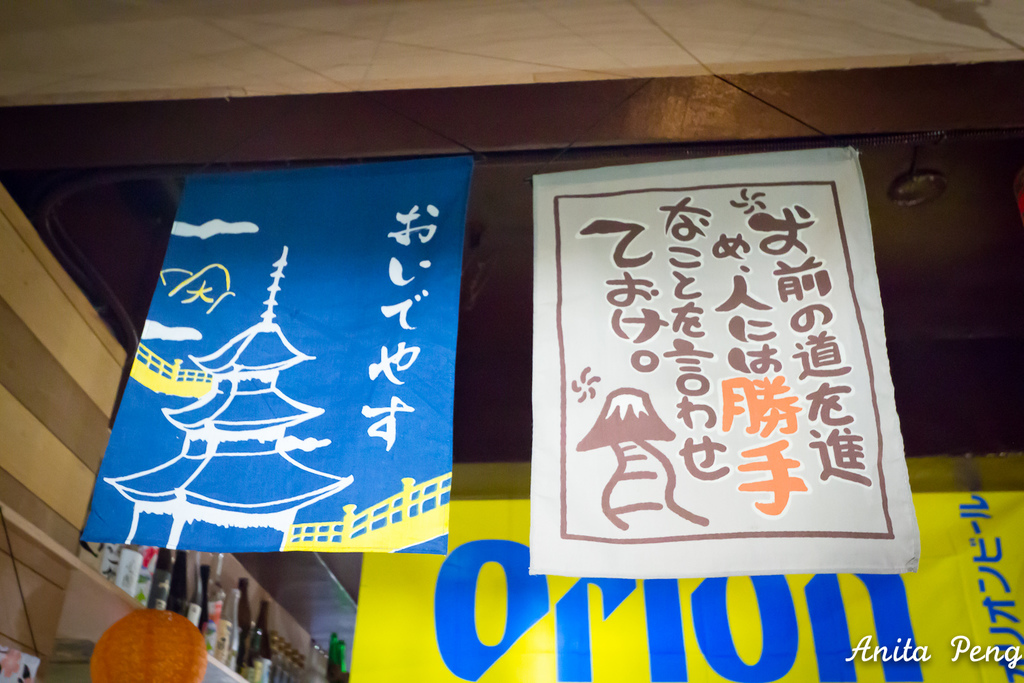 おいでやす
大
お前の道を進
め、人には勝手
なことを言わせ
ておけ。
orion
オリオンビール
Anita Peng